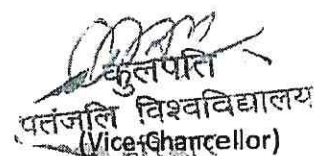 कुलपति
पतंजलि विश्वविद्यालय
(Vice-Chancellor)